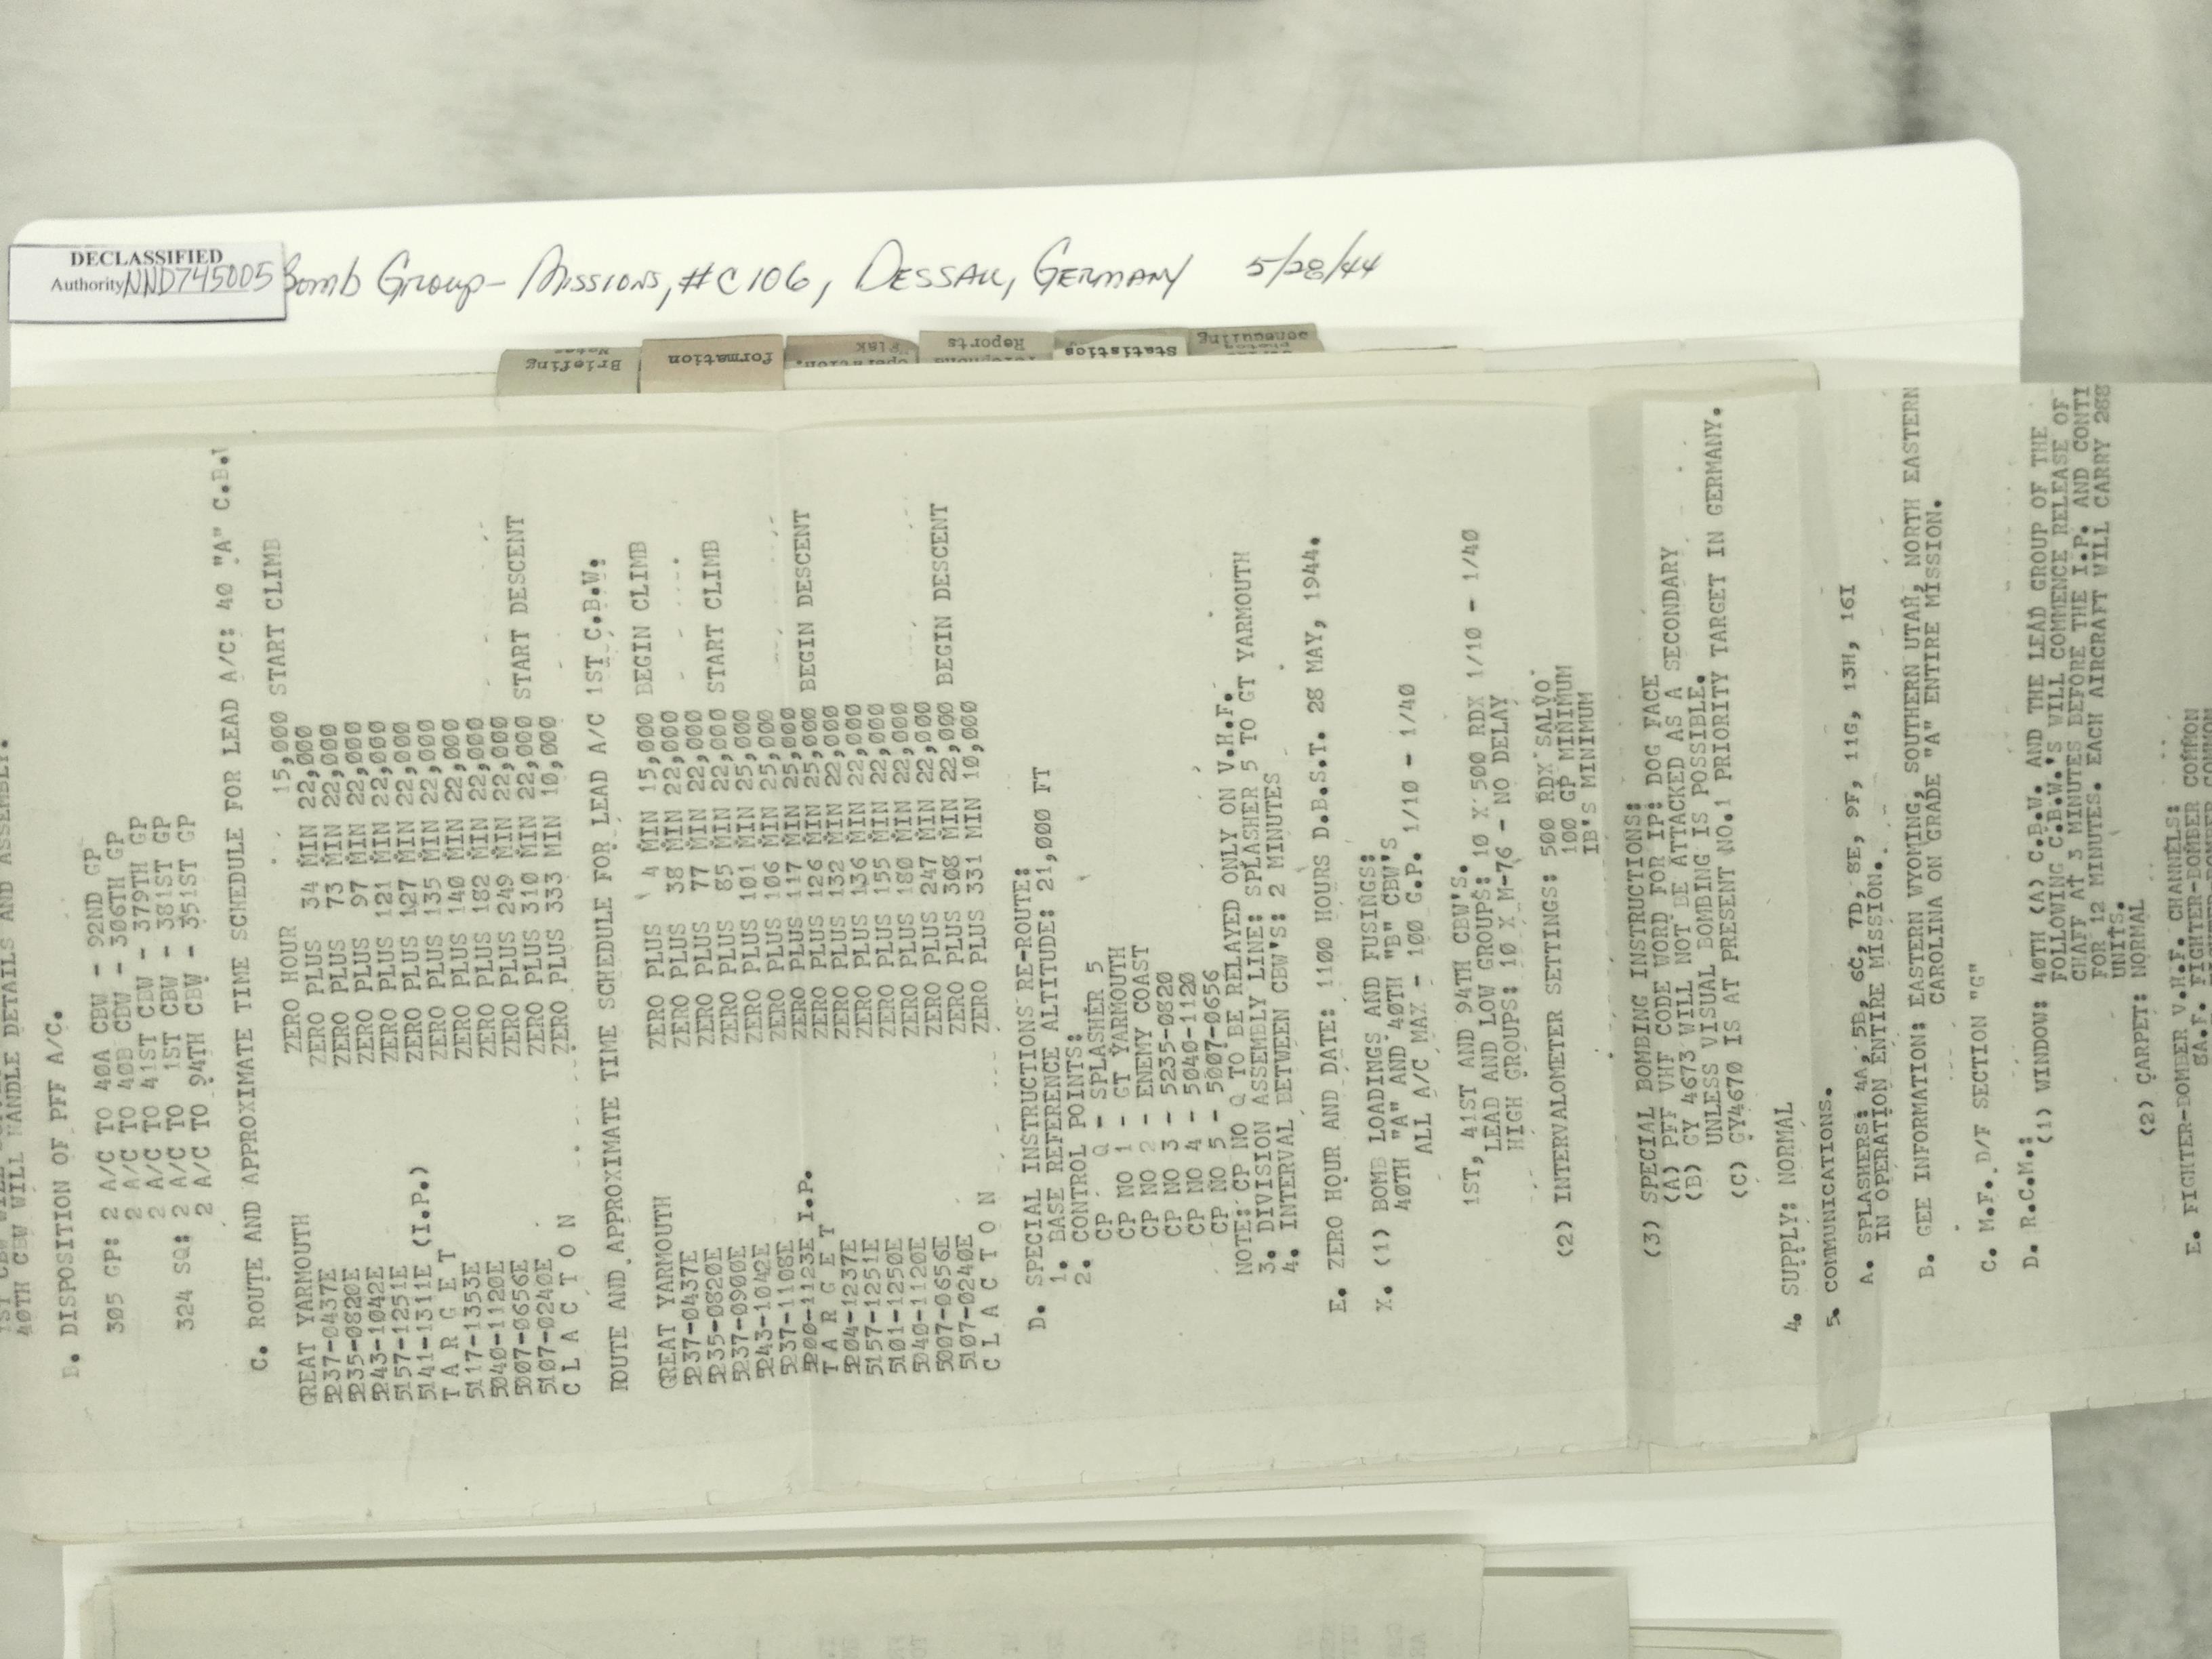 DECLASSIFIED
Authority NND745005
Bomb Group - Missions, #C106, DESSAU, GERMANY 5/28/44
Briefing
formation
Flak
Reports
Statistics
Scheduling
40TH CBW WILL HANDLE DETAILS AND ASSEMBLY.
B. DISPOSITION OF PFF A/C.
305 GP: 2 A/C TO 40A CBW - 92ND GP
2 A/C TO 40B CBW - 306TH GP
2 A/C TO 41ST CBW - 379TH GP
324 SQ: 2 A/C TO 1ST CBW - 381ST GP
2 A/C TO 94TH CBW - 351ST GP
C. ROUTE AND APPROXIMATE TIME SCHEDULE FOR LEAD A/C: 40 "A" C.B.
GREAT YARMOUTH ZERO HOUR 15,000 START CLIMB
5237-0437E ZERO PLUS 34 MIN 22,000
5235-0820E ZERO PLUS 73 MIN 22,000
5243-1042E ZERO PLUS 97 MIN 22,000
5157-1251E ZERO PLUS 121 MIN 22,000
5141-1311E (I.P.) ZERO PLUS 127 MIN 22,000
T A R G E T ZERO PLUS 135 MIN 22,000
5117-1353E ZERO PLUS 140 MIN 22,000
5040-1120E ZERO PLUS 182 MIN 22,000
5007-0656E ZERO PLUS 249 MIN 22,000
5107-0240E ZERO PLUS 310 MIN 22,000 START DESCENT
C L A C T O N ZERO PLUS 333 MIN 10,000
ROUTE AND APPROXIMATE TIME SCHEDULE FOR LEAD A/C 1ST C.B.W.
GREAT YARMOUTH ZERO PLUS 4 MIN 15,000 BEGIN CLIMB
5237-0437E ZERO PLUS 38 MIN 22,000
5235-0820E ZERO PLUS 77 MIN 22,000
5237-0900E ZERO PLUS 85 MIN 22,000 START CLIMB
5243-1042E ZERO PLUS 101 MIN 25,000
5237-1108E ZERO PLUS 106 MIN 25,000
5200-1123E I.P. ZERO PLUS 117 MIN 25,000
T A R G E T ZERO PLUS 126 MIN 25,000 BEGIN DESCENT
5204-1237E ZERO PLUS 132 MIN 22,000
5157-1251E ZERO PLUS 136 MIN 22,000
5101-1250E ZERO PLUS 155 MIN 22,000
5040-1120E ZERO PLUS 180 MIN 22,000
5007-0656E ZERO PLUS 247 MIN 22,000
5107-0240E ZERO PLUS 308 MIN 22,000 BEGIN DESCENT
C L A C T O N ZERO PLUS 331 MIN 10,000
D. SPECIAL INSTRUCTIONS RE-ROUTE:
1. BASE REFERENCE ALTITUDE: 21,000 FT
2. CONTROL POINTS:
CP Q - SPLASHER 5
CP NO 1 - GT YARMOUTH
CP NO 2 - ENEMY COAST
CP NO 3 - 5235-0820
CP NO 4 - 5040-1120
CP NO 5 - 5007-0656
NOTE: CP NO Q TO BE RELAYED ONLY ON V.H.F.
3. DIVISION ASSEMBLY LINE: SPLASHER 5 TO GT YARMOUTH
4. INTERVAL BETWEEN CBW'S: 2 MINUTES
E. ZERO HOUR AND DATE: 1100 HOURS D.B.S.T. 28 MAY, 1944.
X. (1) BOMB LOADINGS AND FUSINGS:
40TH "A" AND 40TH "B" CBW'S
ALL A/C MAX - 100 G.P. 1/10 - 1/40
1ST, 41ST AND 94TH CBW'S.
LEAD AND LOW GROUPS: 10 X 500 RDX 1/10 - 1/40
HIGH GROUPS: 10 X M-76 - NO DELAY
(2) INTERVALOMETER SETTINGS: 500 RDX SALVO
100 GP MINIMUM
IB'S MINIMUM
(3) SPECIAL BOMBING INSTRUCTIONS:
(A) PFF VHF CODE WORD FOR IP: DOG FACE
(B) GY 4673 WILL NOT BE ATTACKED AS A SECONDARY
UNLESS VISUAL BOMBING IS POSSIBLE.
(C) GY4670 IS AT PRESENT NO.1 PRIORITY TARGET IN GERMANY.
4. SUPPLY: NORMAL
5. COMMUNICATIONS.
A. SPLASHERS: 4A, 5B, 6C, 7D, 8E, 9F, 11G, 13H, 16I
IN OPERATION ENTIRE MISSION.
B. GEE INFORMATION: EASTERN WYOMING, SOUTHERN UTAH, NORTH EASTERN
CAROLINA ON GRADE "A" ENTIRE MISSION.
C. M.F. D/F SECTION "G"
D. R.C.M.:
(1) WINDOW: 40TH (A) C.B.W. AND THE LEAD GROUP OF THE
FOLLOWING C.B.W.'S WILL COMMENCE RELEASE OF
CHAFF AT 3 MINUTES BEFORE THE I.P. AND CONTI
FOR 12 MINUTES. EACH AIRCRAFT WILL CARRY 288
UNITS.
(2) CARPET: NORMAL
E. FIGHTER-BOMBER V.H.F. CHANNELS:
8A.F. FIGHTER-BOMBER COMMON